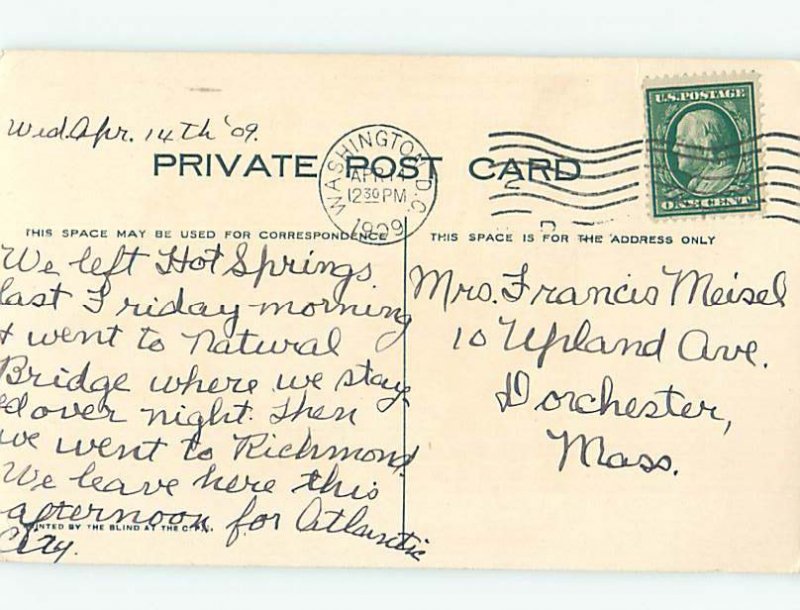 Wed. Apr. 14th '09.
PRIVATE POST CARD
WASHINGTON, D.C.
APR 14
12 30 PM
1909
U.S. POSTAGE
ONE CENT
THIS SPACE MAY BE USED FOR CORRESPONDENCE
We left Hot Springs
last Friday morning
& went to Natural
Bridge where we stay-
ed over night. Then
we went to Richmond.
We leave here this
afternoon for Atlantic
City.
THIS SPACE IS FOR THE ADDRESS ONLY
Mrs. Francis Meisel
10 Upland Ave.
Dorchester,
Mass.
PRINTED BY THE BLIND AT THE